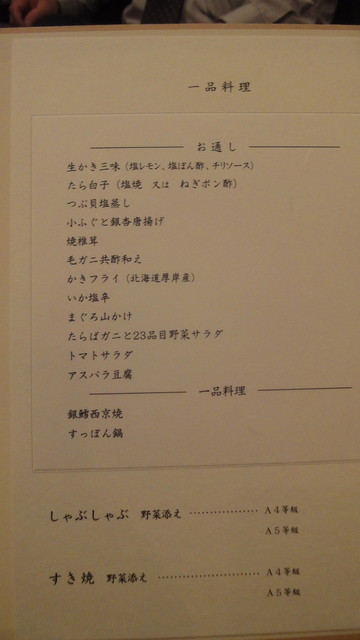 一品料理
お通し
生かき三味（塩レモン、塩ぽん酢、チリソース）
たら白子（塩焼　又は　ねぎポン酢）
つぶ貝塩蒸し
小ふぐと銀杏唐揚げ
焼椎茸
毛ガニ共酢和え
かきフライ（北海道厚岸産）
いか塩辛
まぐろ山かけ
たらばガニと23品目野菜サラダ
トマトサラダ
アスパラ豆腐
一品料理
銀鱈西京焼
すっぽん鍋
しゃぶしゃぶ　野菜添え ………………… A4等級
A5等級
すき焼　野菜添え ………………… A4等級
A5等級